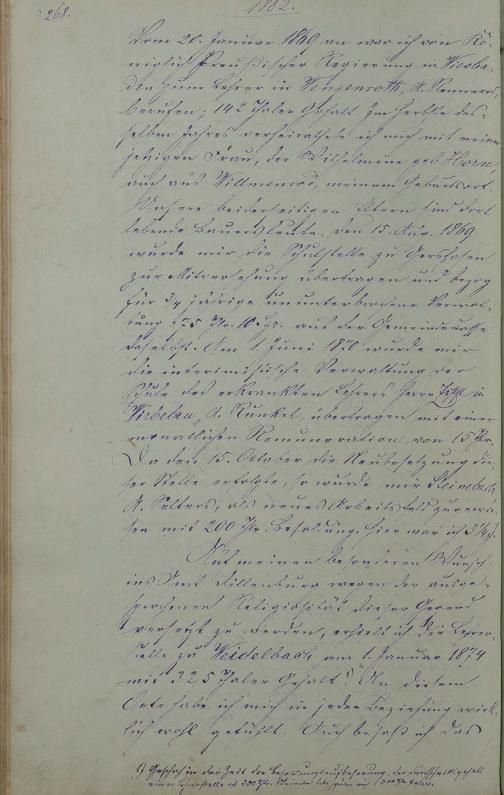 268.
1882.
Vom 20. Januar 1869 an war ich von Kö-
niglich Preußischer Regierung in Wiesba-
den zum Lehrer in Wengenroth, A. Rennerod,
berufen; 142 Thaler Gehalt. Im Herbste des-
selben Jahres verheirathete ich mich mit meiner
jetzigen Frau, der Wilhelmine geb. Horn,
auch aus Willmenrod, meinem Geburtsort.
Unsere beiderseitigen Eltern sind dort
lebende Bauersleute. Den 15. Aug. 1869
wurde mir die Schulstelle zu Gershasen
zur Mitversehung übertragen und bezog
für 3/4 jährige ununterbrochene Verwal-
tung Thr. 10 Sgr. aus der Gemeindecasse
daselbst. Am 1. Juni 1870 wurde mir
die interimistische Verwaltung der
Schule des erkrankten Lehrers Herrn in
Wirbelau, A. Runkel, übertragen mit einer
monatlichen Remuneration von 15 Thr.
Da den 15. October die Neubesetzung die-
ser Stelle erfolgte, so wurde mir Steinebach,
A. Selters, als neues Arbeitsfeld zugewie-
sen mit 200 Thr. Besoldung. Hier war ich 3 1/4 J.
Auf meinen besonderen Wunsch
ins Amt Dillenburg wegen der ausge-
sprochenen Religiösität dieser Gegend
versetzt zu werden, erhielt ich die Lehrer-
stelle zu Weidelbach am 1. Januar 1874
mit 325 Thaler Gehalt. 1) An diesem
Orte habe ich mich in jeder Beziehung wirk-
lich wohl gefühlt. Auch besaß ich das
1) Geschah in der Zeit der Besoldungsaufbesserung, der Durchschnittsgehalt
einer Lehrstelle 300 Thr.